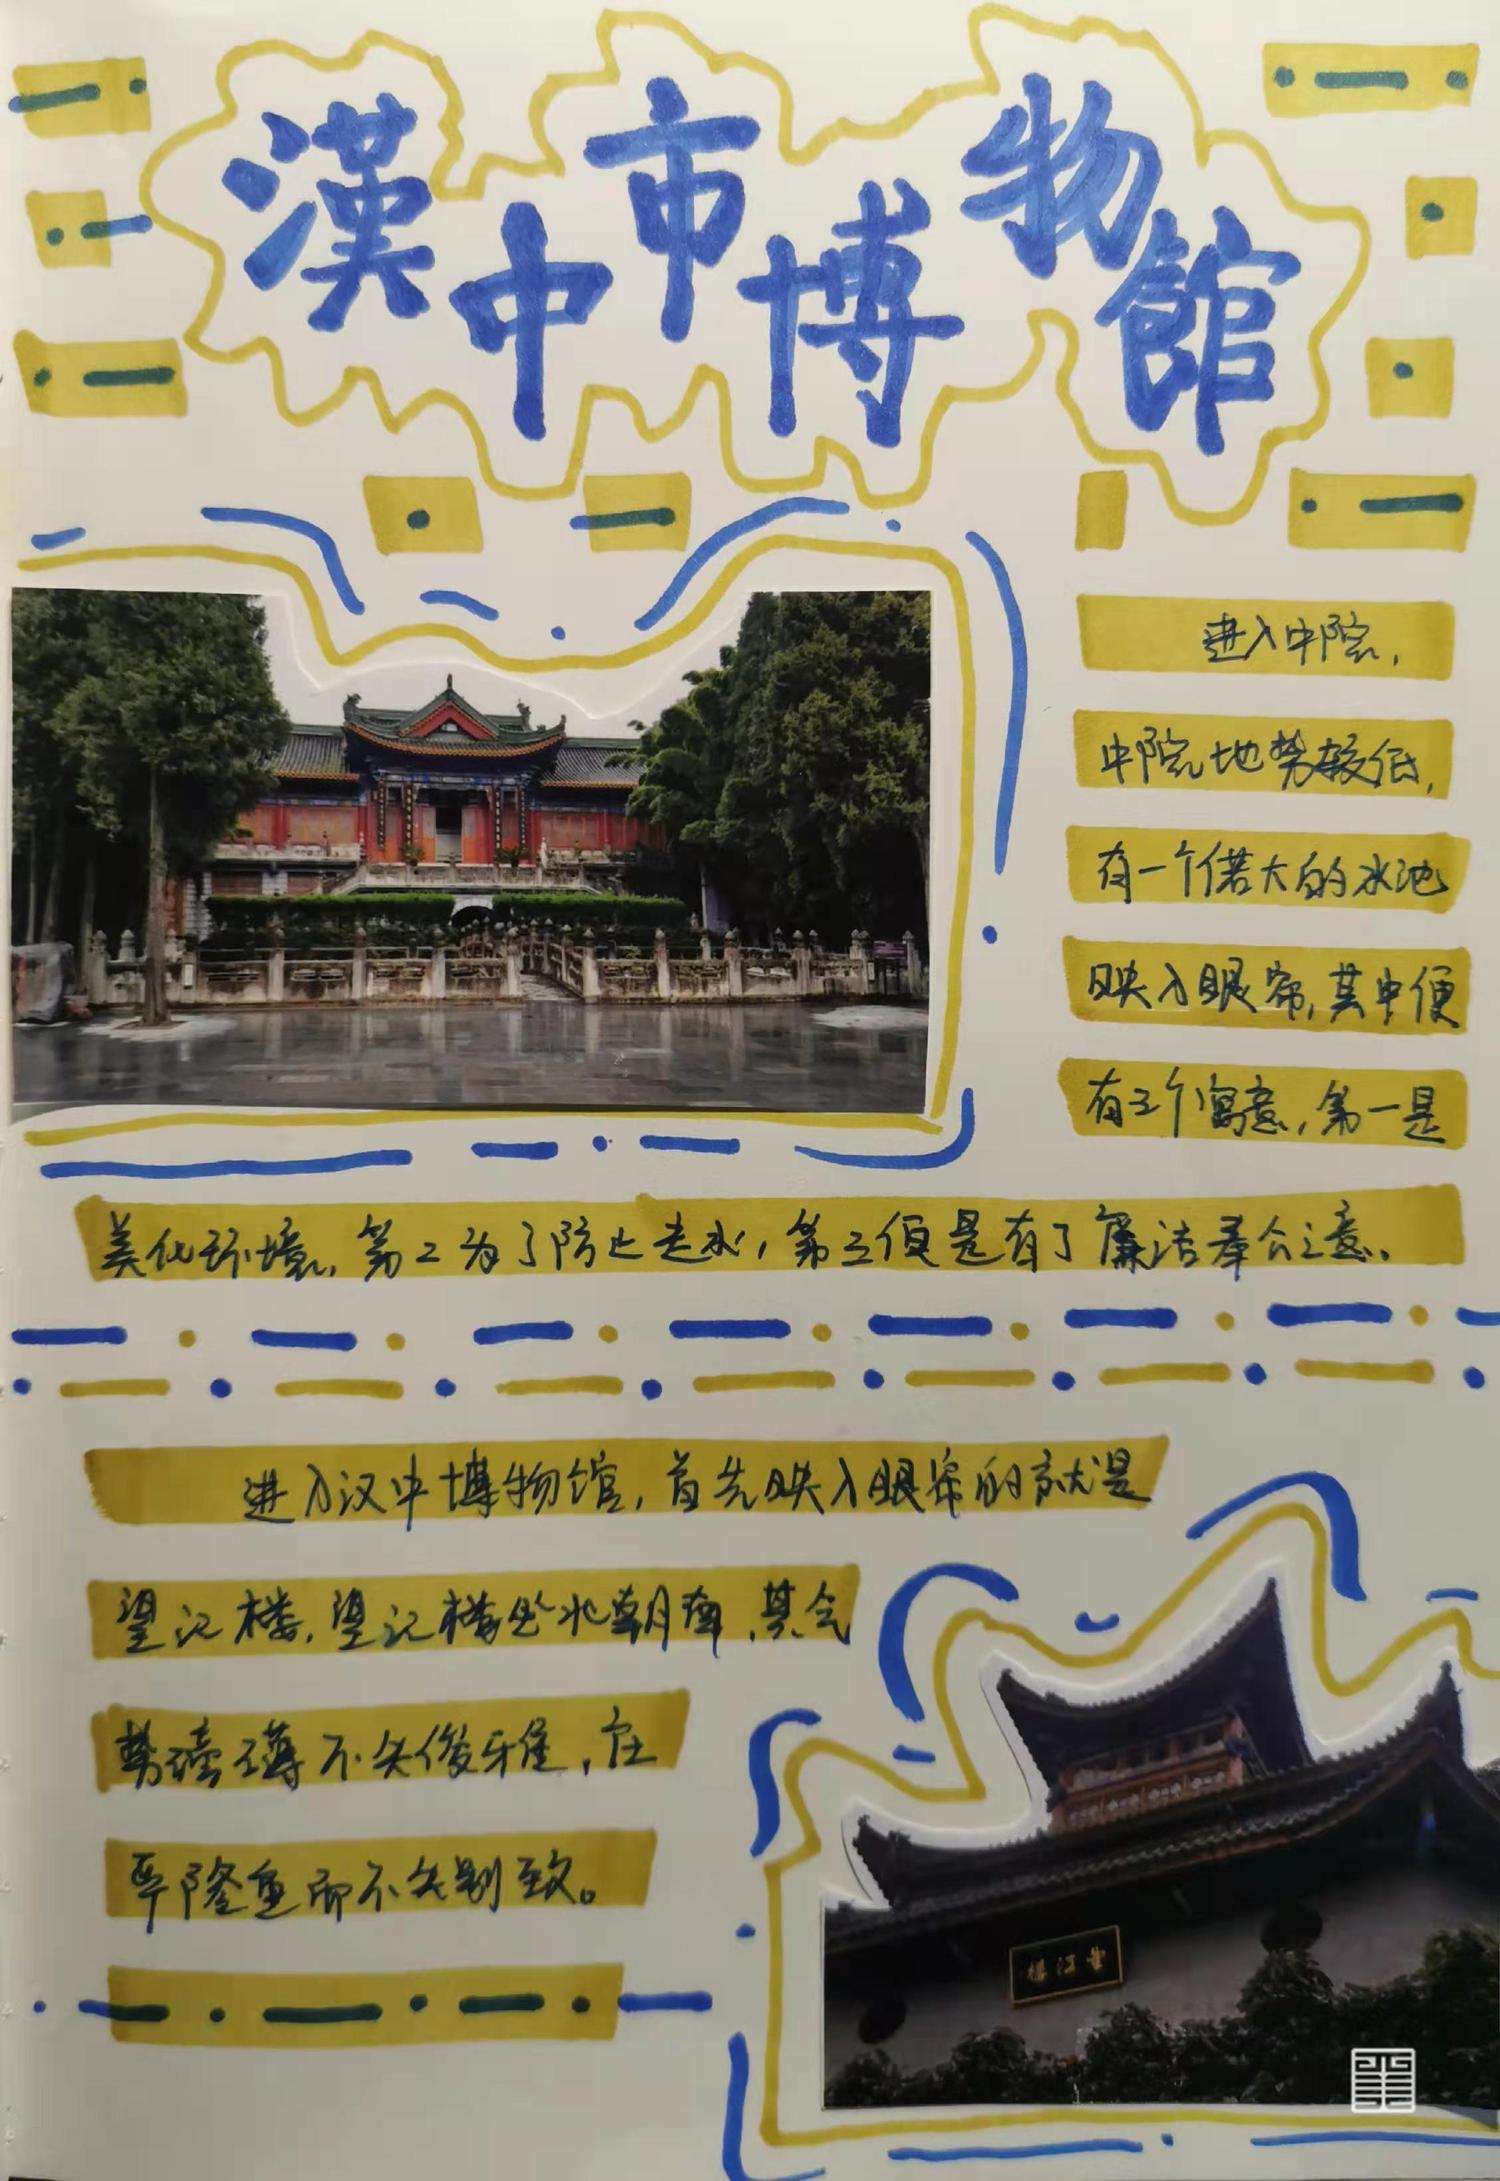 漢中市博物館
进入中院,
中院地势较低,
有一个偌大的水池
映入眼帘,其中便
有三个寓意,第一是
美化环境,第二为了防止走水,第三便是有了廉洁奉公之意。
进入汉中博物馆,首先映入眼帘的就是
望江楼,望江楼坐北朝南,其气
势磅礴不失俊雅,庄
严隆重而不失别致。
望江楼